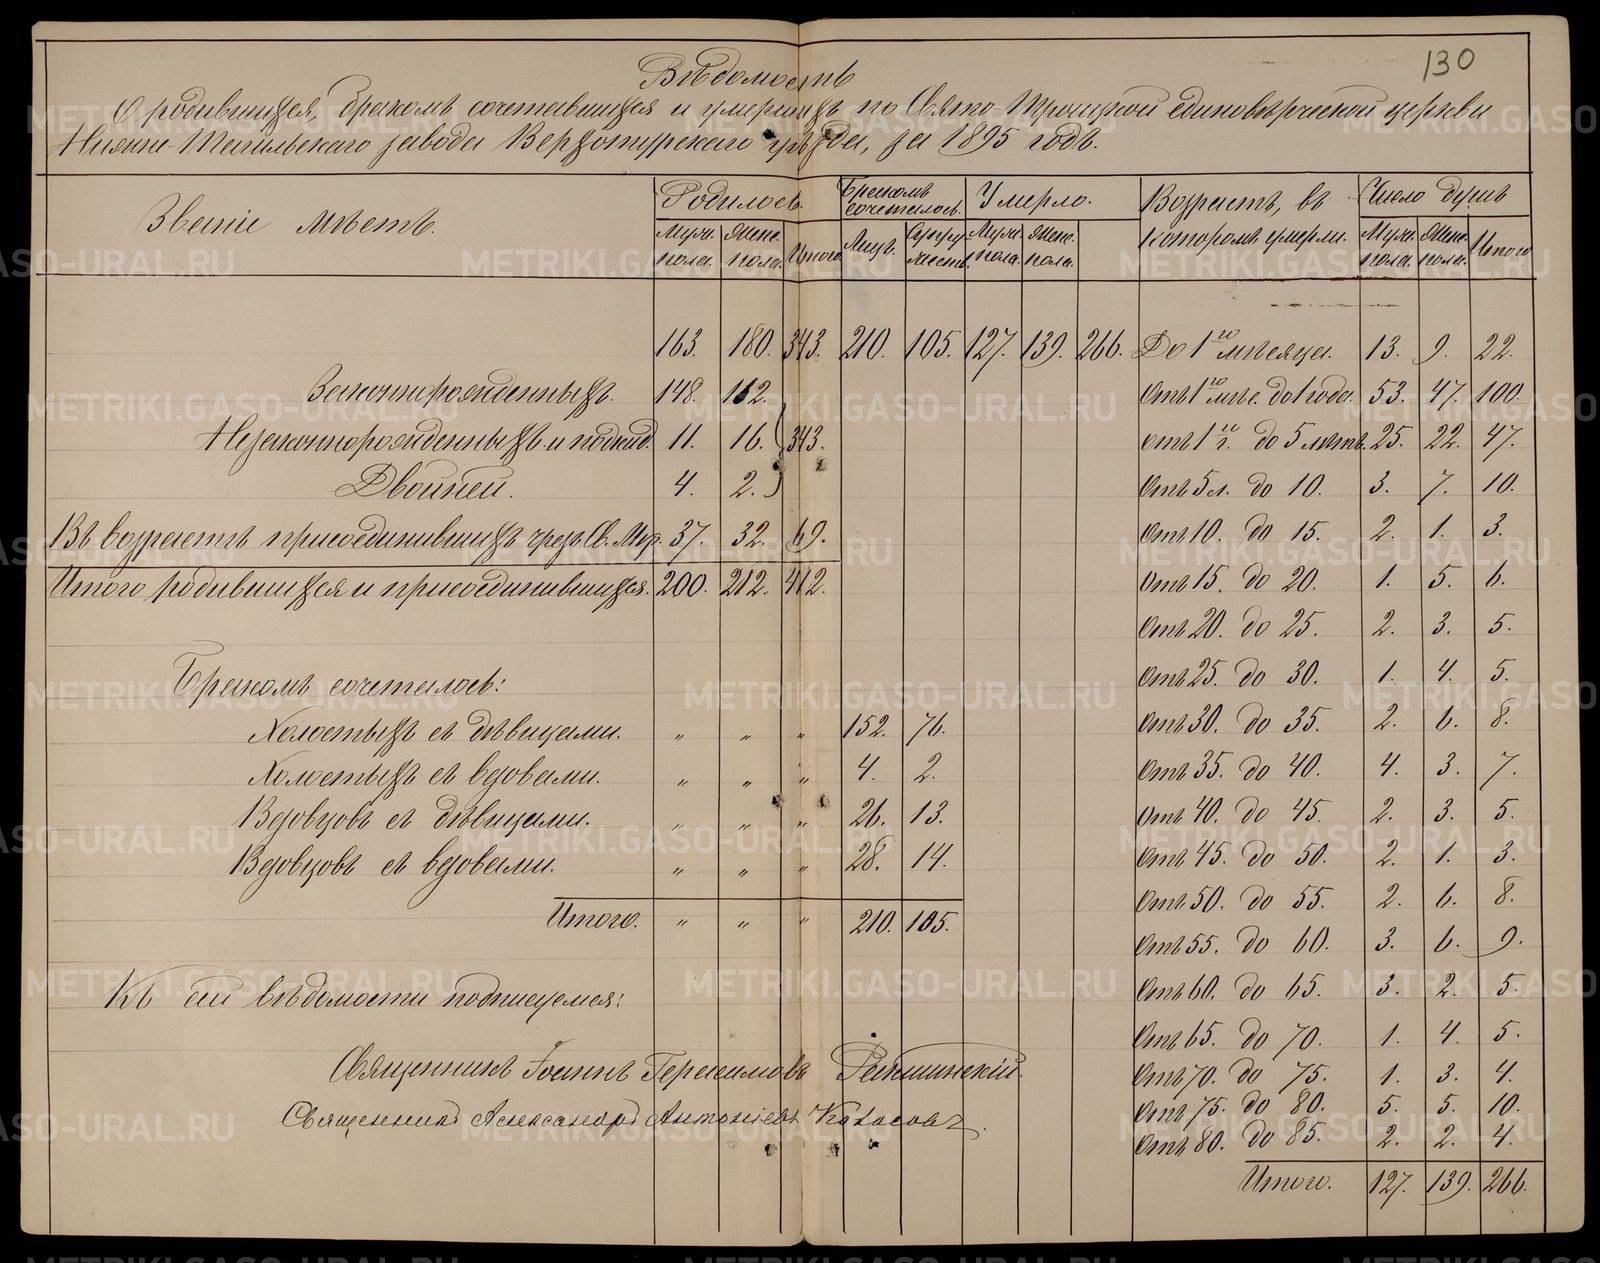 130
Вѣдомость
О родившихся, бракомъ сочетавшихся и умершихъ по Свято-Троицкой единовѣрческой церкви
Нижне-Тагильскаго завода Верхотурскаго уѣзда, за 1895 годъ.
Званіе мѣстъ. Родилось. Бракомъ сочеталось. Умерло. Возрастъ, въ которомъ умерли. Число душъ
Муж. пола. Женс. пола. Итого Лицъ. Супружествъ. Муж. пола. Женс. пола. Муж. пола. Женс. пола. Итого
163. 180. 343. 210. 105. 127. 139. 266. До 1го мѣсяца. 13. 9. 22.
Законнорожденныхъ. 148. 162. Отъ 1го мѣс. до 1 года. 53. 47. 100.
Незаконнорожденныхъ и подкид. 11. 16. 343. отъ 1го г. до 5 лѣтъ. 25. 22. 47.
Двойней. 4. 2. Отъ 5 л. до 10. 3. 7. 10.
Въ возрастѣ присоединившихъ чрезъ Св. Мѵр. 37. 32. 69. Отъ 10. до 15. 2. 1. 3.
Итого родившихся и присоединившихся. 200. 212. 412. Отъ 15. до 20. 1. 5. 6.
Отъ 20. до 25. 2. 3. 5.
Бракомъ сочеталось: Отъ 25. до 30. 1. 4. 5.
Холостыхъ съ дѣвицами. „ „ „ 152. 76. Отъ 30. до 35. 2. 6. 8.
Холостыхъ съ вдовами. „ „ „ 4. 2. Отъ 35. до 40. 4. 3. 7.
Вдовцовъ съ дѣвицами. „ „ „ 26. 13. Отъ 40. до 45. 2. 3. 5.
Вдовцовъ съ вдовами. „ „ „ 28. 14. Отъ 45. до 50. 2. 1. 3.
Отъ 50. до 55. 2. 6. 8.
Итого. „ „ „ 210. 105. Отъ 55. до 60. 3. 6. 9.
Къ сей вѣдомости подписуемся: Отъ 60. до 65. 3. 2. 5.
Отъ 65. до 70. 1. 4. 5.
Священникъ Іоаннъ Герасимовъ Отъ 70. до 75. 1. 3. 4.
Священникъ Александръ Антоніевъ Отъ 75. до 80. 5. 5. 10.
Отъ 80. до 85. 2. 2. 4.
Итого. 127. 139. 266.
METRIKI.GASO-URAL.RU